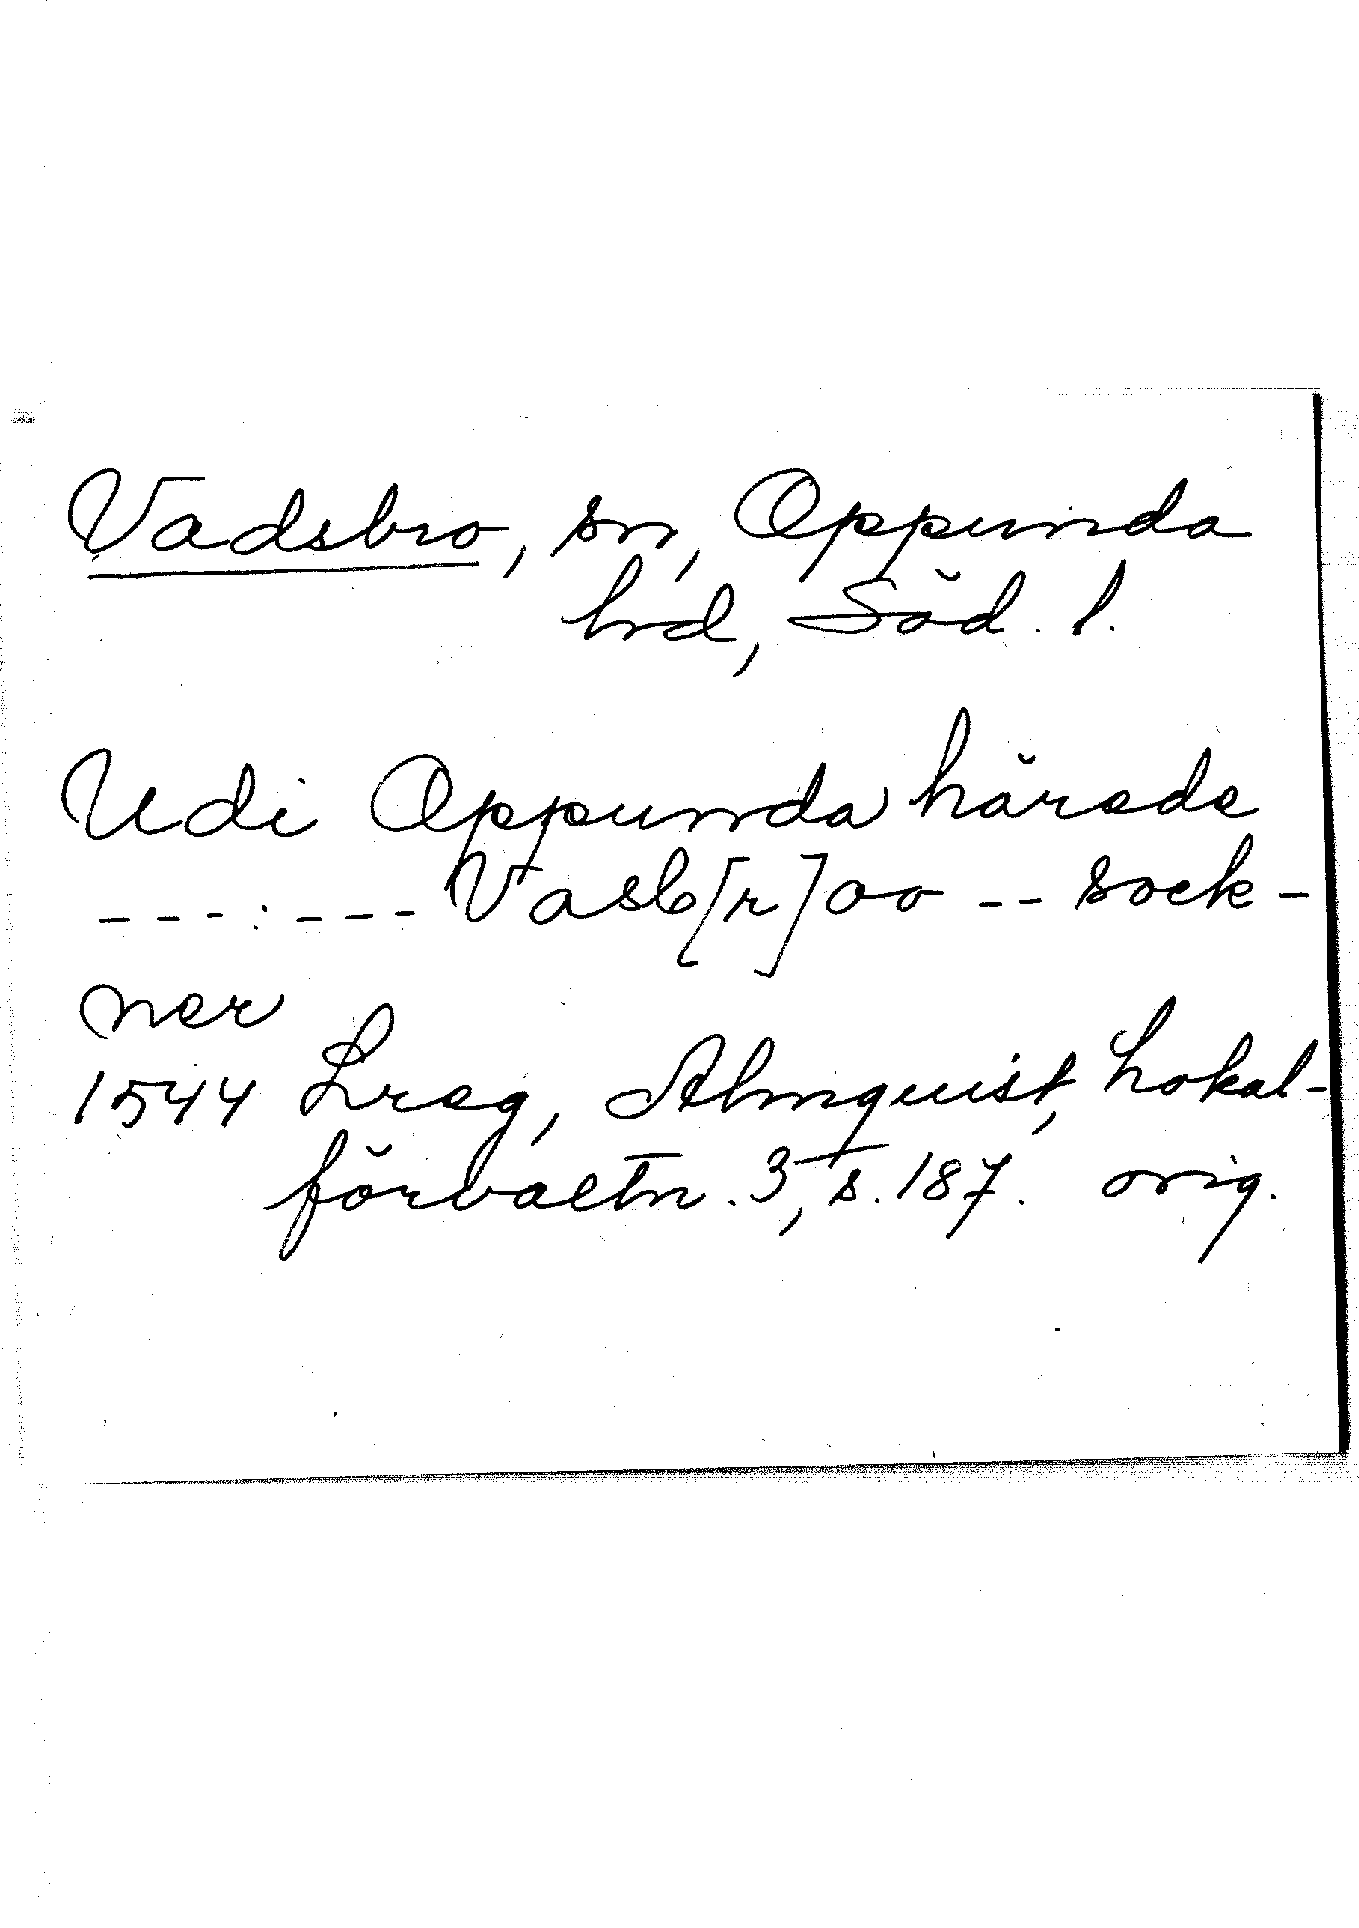 Vadsbro, sn, Oppunda
hrd, Söd. l.
Udi Oppunda härede
- - - : - - - Vasb[r]oo - - sock-
ner
1544 Lreg, Almquist, Lokal-
förvaltn. 3, s. 187. orig.